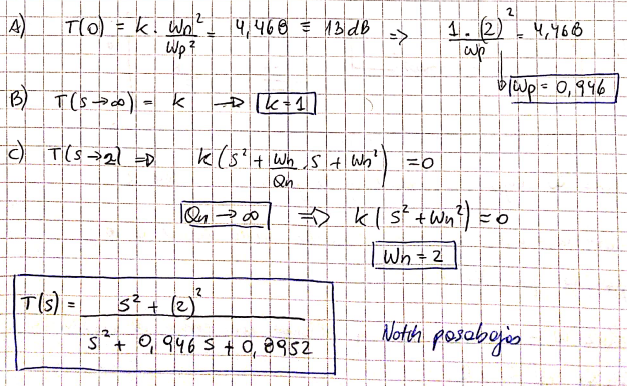 A) T(0) = k · Wn² / Wp² = 4,468 ≡ 13 dB => 1 · (2)² / Wp = 4,468
Wp = 0,946
B) T(s→∞) = k → k = 1
C) T(s→2) => k(s² + Wn/Qn s + Wn²) = 0
Qn → ∞ => k(s² + Wn²) = 0
Wn = 2
T(s) = s² + (2)² / s² + 0,946 s + 0,8952
Notch pasabajos